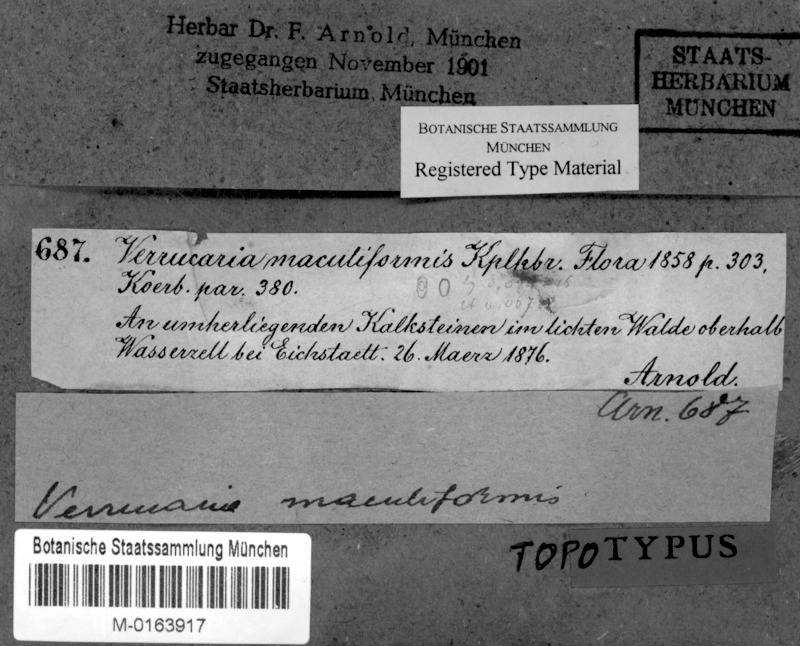 Herbar Dr. F. Arnold, München
zugegangen November 1901
Staatsherbarium, München
STAATS-
HERBARIUM
MÜNCHEN
BOTANISCHE STAATSSAMMLUNG
MÜNCHEN
Registered Type Material
687. Verrucaria maculiformis Kplhbr. Flora 1858 p. 303,
Koerb. par. 380.
An umherliegenden Kalksteinen im lichten Walde oberhalb
Wasserzell bei Eichstaett. 26. Maerz 1876.
Arnold.
Arn. 687
Verrucaria maculiformis
TOPOTYPUS
Botanische Staatssammlung München
M-0163917